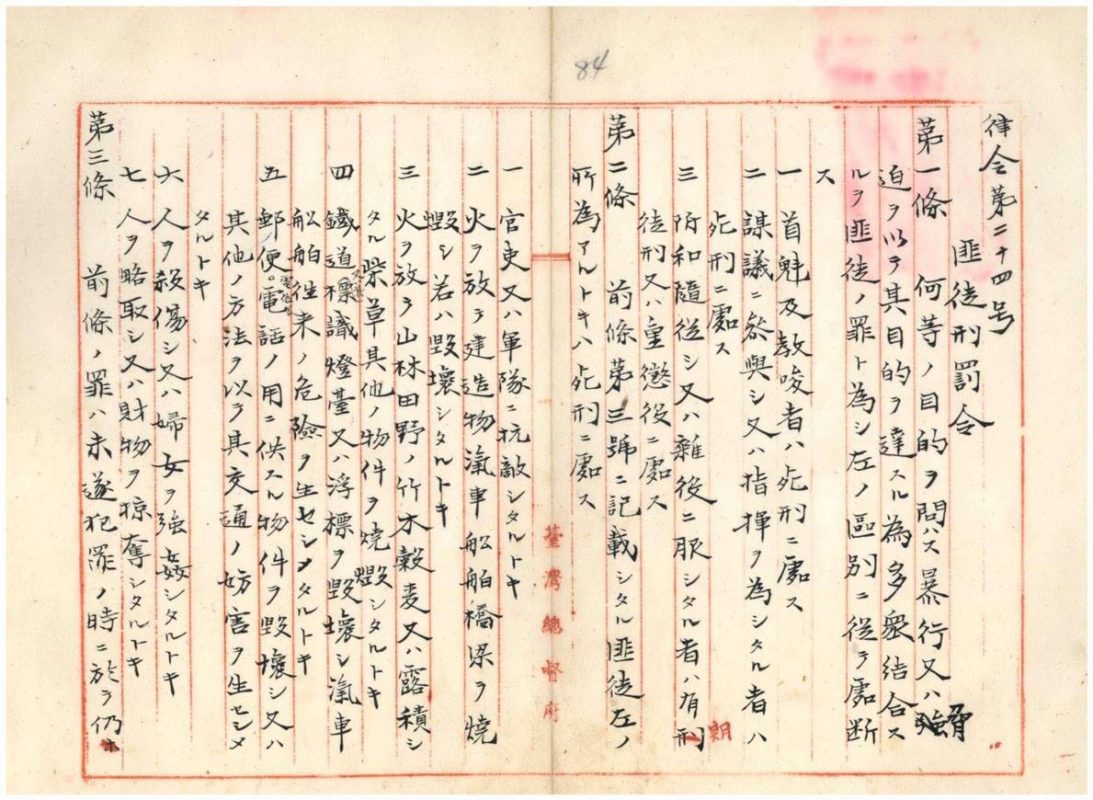 84
律令第二十四号
匪徒刑罰令
第一條 何等ノ目的ヲ問ハス暴行又ハ脅
迫ヲ以テ其目的ヲ達スル為多衆結合ス
ルヲ匪徒ノ罪ト為シ左ノ區別ニ従テ處断
ス
一 首魁及教唆者ハ死刑ニ處ス
二 謀議ニ參與シ又ハ指揮ヲ為シタル者ハ
死刑ニ處ス
三 附和隨従シ又ハ雜役ニ服シタル者ハ有期
徒刑又ハ重懲役ニ處ス
第二條 前條第三號ニ記載シタル匪徒左ノ
所為アルトキハ死刑ニ處ス
臺灣總督府
一 官吏又ハ軍隊ニ抗敵シタルトキ
二 火ヲ放テ建造物滊車船舶橋梁ヲ燒
燬シ若ハ毀壞シタルトキ
三 火ヲ放テ山林田野ノ竹木穀麦又ハ露積シ
タル柴草其他ノ物件ヲ燒燬シタルトキ
四 鐵道標識燈臺又ハ浮標ヲ毀壞シ滊車
船舶往来ノ危險ヲ生セシメタルトキ
五 郵便電話ノ用ニ供スル物件ヲ毀壞シ又ハ
其他ノ方法ヲ以テ其交通ノ妨害ヲ生セシメ
タルトキ
六 人ヲ殺傷シ又ハ婦女ヲ強姦シタルトキ
七 人ヲ略取シ又ハ財物ヲ掠奪シタルトキ
第三條 前條ノ罪ハ未遂犯罪ノ時ニ於テ仍ホ